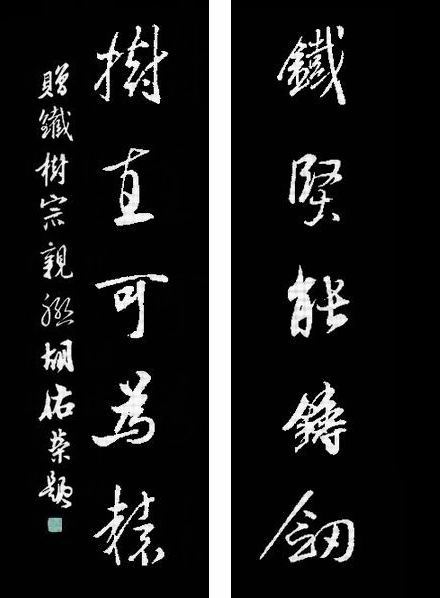 鐵堅能鑄劒
樹直可為轅
贈鐵樹宗親 胡佑榮題